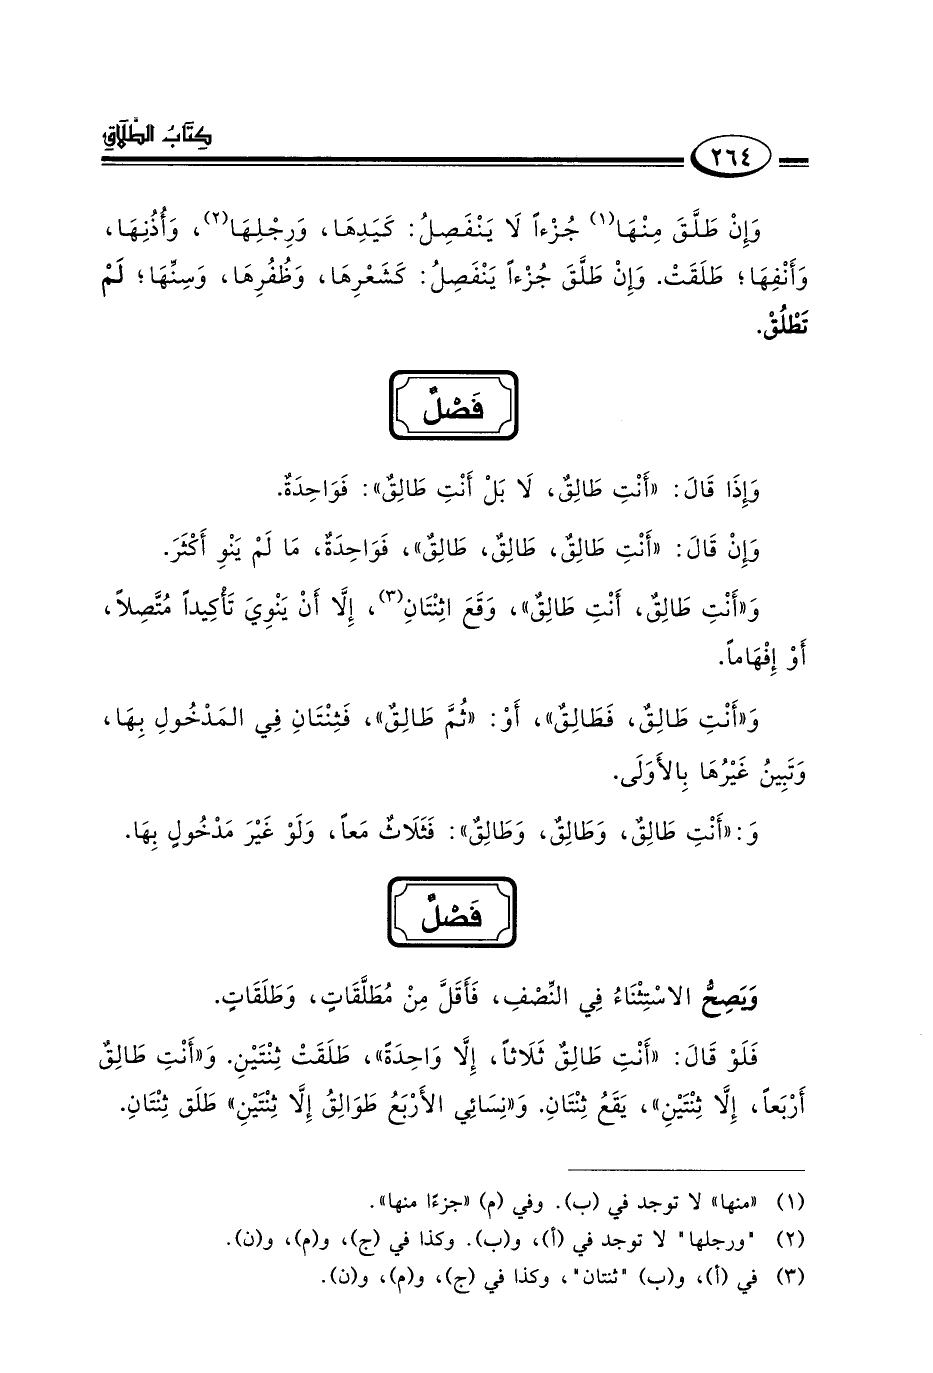 كِتَابُ الطَّلَاقِ
٢٦٤
وَإِنْ طَلَّقَ مِنْهَا(١) جُزْءاً لَا يَنْفَصِلُ: كَيَدِهَا، وَرِجْلِهَا(٢)، وَأُذُنِهَا،
وَأَنْفِهَا؛ طَلَقَتْ. وَإِنْ طَلَّقَ جُزْءاً يَنْفَصِلُ: كَشَعْرِهَا، وَظُفُرِهَا، وَسِنِّهَا؛ لَمْ
تَطْلُقْ.
فَصْلٌ
وَإِذَا قَالَ: «أَنْتِ طَالِقٌ، لَا بَلْ أَنْتِ طَالِقٌ»: فَوَاحِدَةٌ.
وَإِنْ قَالَ: «أَنْتِ طَالِقٌ، طَالِقٌ، طَالِقٌ»، فَوَاحِدَةٌ، مَا لَمْ يَنْوِ أَكْثَرَ.
وَ«أَنْتِ طَالِقٌ، أَنْتِ طَالِقٌ»، وَقَعَ اثِنْتَانِ(٣)، إِلَّا أَنْ يَنْوِيَ تَأْكِيداً مُتَّصِلاً،
أَوْ إِفْهَاماً.
وَ«أَنْتِ طَالِقٌ، فَطَالِقٌ»، أَوْ: «ثُمَّ طَالِقٌ»، فَثِنْتَانِ فِي المَدْخُولِ بِهَا،
وَتَبِينُ غَيْرُهَا بِالأَوَلَى.
وَ: «أَنْتِ طَالِقٌ، وَطَالِقٌ، وَطَالِقٌ»: فَثَلَاثٌ مَعاً، وَلَوْ غَيْرَ مَدْخُولٍ بِهَا.
فَصْلٌ
وَيَصِحُّ الاسْتِثْنَاءُ فِي النِّصْفِ، فَأَقَلَّ مِنْ مُطَلَّقَاتٍ، وَطَلَقَاتٍ.
فَلَوْ قَالَ: «أَنْتِ طَالِقٌ ثَلَاثاً، إِلَّا وَاحِدَةً»، طَلَقَتْ ثِنْتَيْنِ. وَ«أَنْتِ طَالِقٌ
أَرْبَعاً، إِلَّا ثِنْتَيْنِ»، يَقَعُ ثِنْتَانِ. وَ«نِسَائِي الأَرْبَعُ طَوَالِقُ إِلَّا ثِنْتَيْنِ» طَلَق ثِنْتَانِ.
(١) «منها» لا توجد في (ب). وفي (م) «جزءًا منها».
(٢) "ورجلها" لا توجد في (أ)، و(ب). وكذا في (ج)، و(م)، و(ن).
(٣) في (أ)، و(ب) "ثنتان"، وكذا في (ج)، و(م)، و(ن).